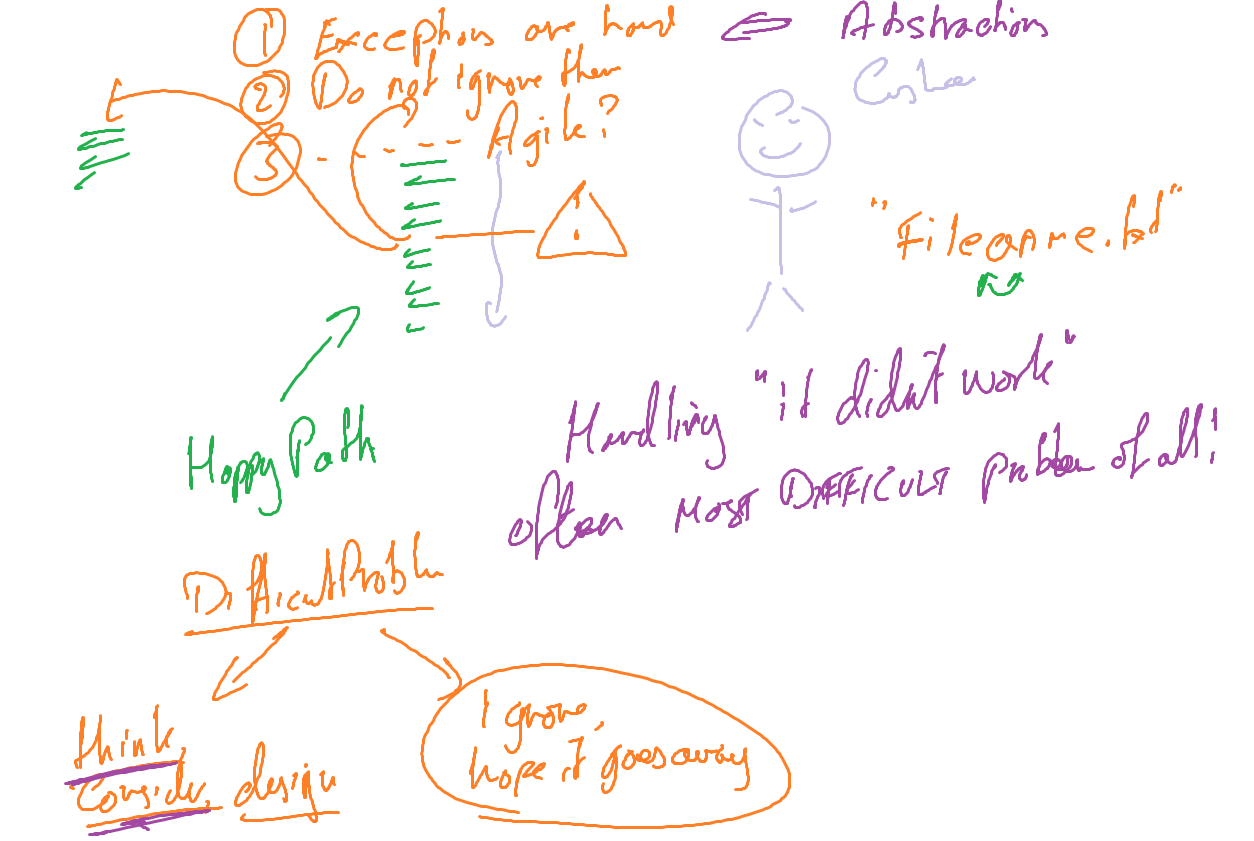 ① Exceptions are hard
Abstractions
② Do not ignore them
③ - - - - - Agile?
!
"Filename.txt"
Handling "it didn't work"
often MOST DIFFICULT problem of all!
Happy Path
Difficult Problem
think,
consider, design
Ignore,
hope it goes away